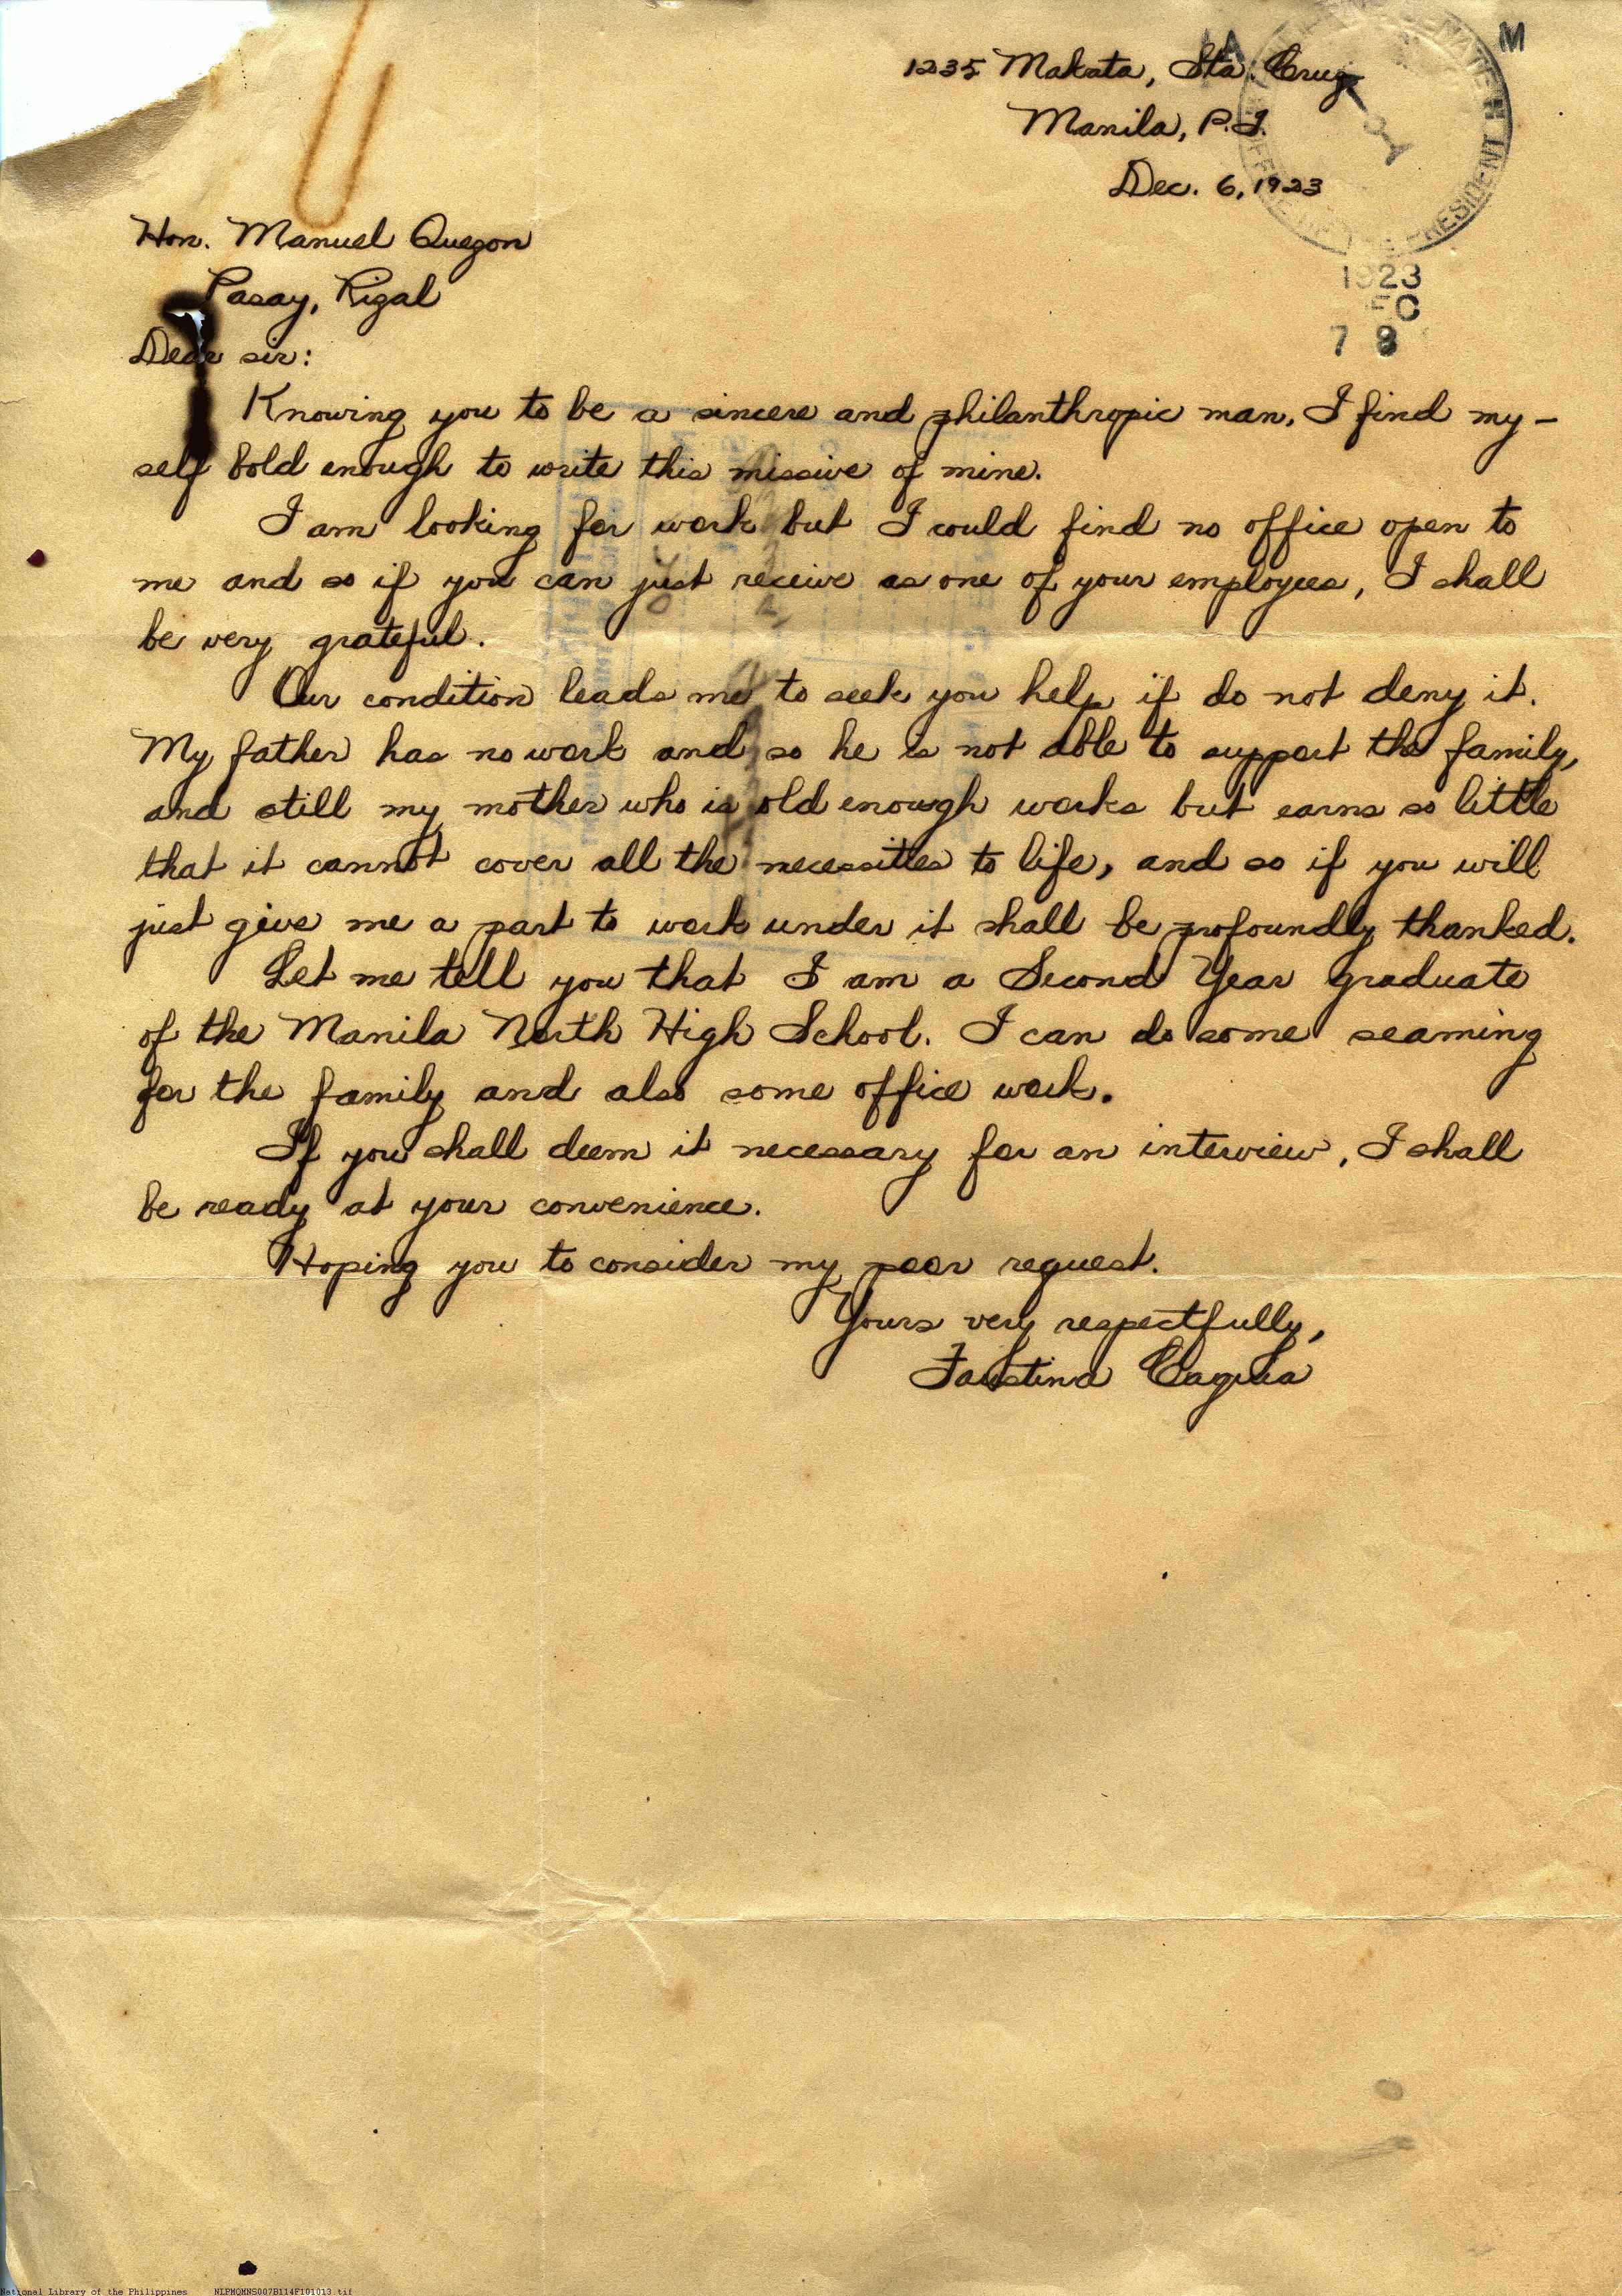 1235 Makata, Sta. Cruz
Manila, P.I.
Dec. 6, 1923
M
PRESIDENT
1923
7 8
Hon. Manuel Quezon
Pasay, Rizal
Dear sir:
Knowing you to be a sincere and philanthropic man, I find my-
self bold enough to write this missive of mine.
I am looking for work but I could find no office open to
me and so if you can just receive as one of your employees, I shall
be very grateful.
Our condition leads me to seek you help if do not deny it.
My father has no work and so he is not able to support the family,
and still my mother who is old enough works but earns so little
that it cannot cover all the necessities to life, and so if you will
just give me a part to work under it shall be profoundly thanked.
Let me tell you that I am a Second Year graduate
of the Manila North High School. I can do some seaming
for the family and also some office work.
If you shall deem it necessary for an interview, I shall
be ready at your convenience.
Hoping you to consider my poor request.
Yours very respectfully,
Faustina
National Library of the Philippines NLPMQMNS007B114F101013.tif